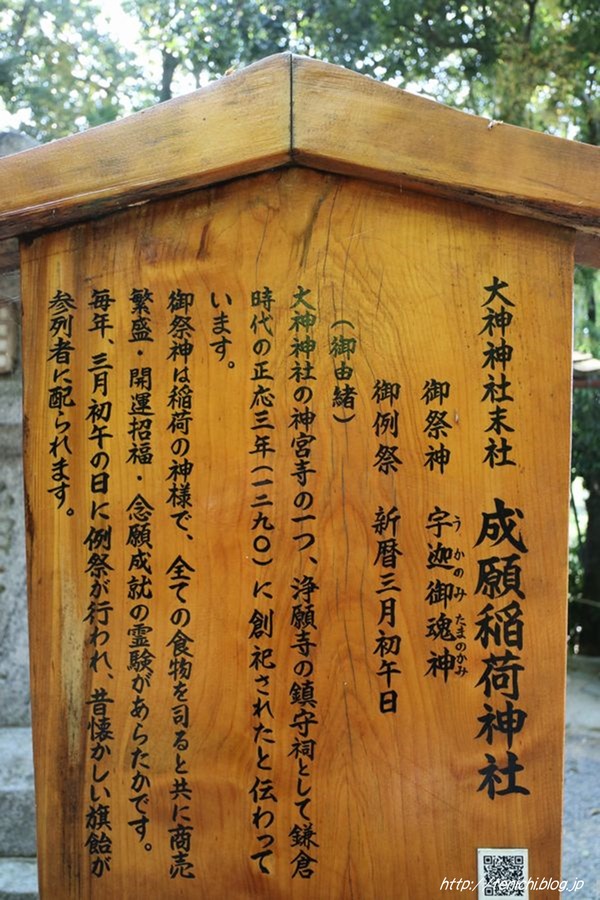 大神神社末社 成願稲荷神社
御祭神 宇迦御魂神
うかのみ たまのかみ
御例祭 新暦三月初午日
(御由緒)
大神神社の神宮寺の一つ、浄願寺の鎮守祠として鎌倉
時代の正応三年(一二九〇)に創祀されたと伝わって
います。
御祭神は稲荷の神様で、全ての食物を司ると共に商売
繁盛・開運招福・念願成就の霊験があらたかです。
毎年、三月初午の日に例祭が行われ、昔懐かしい旗飴が
参列者に配られます。
http://tenichi.blog.jp